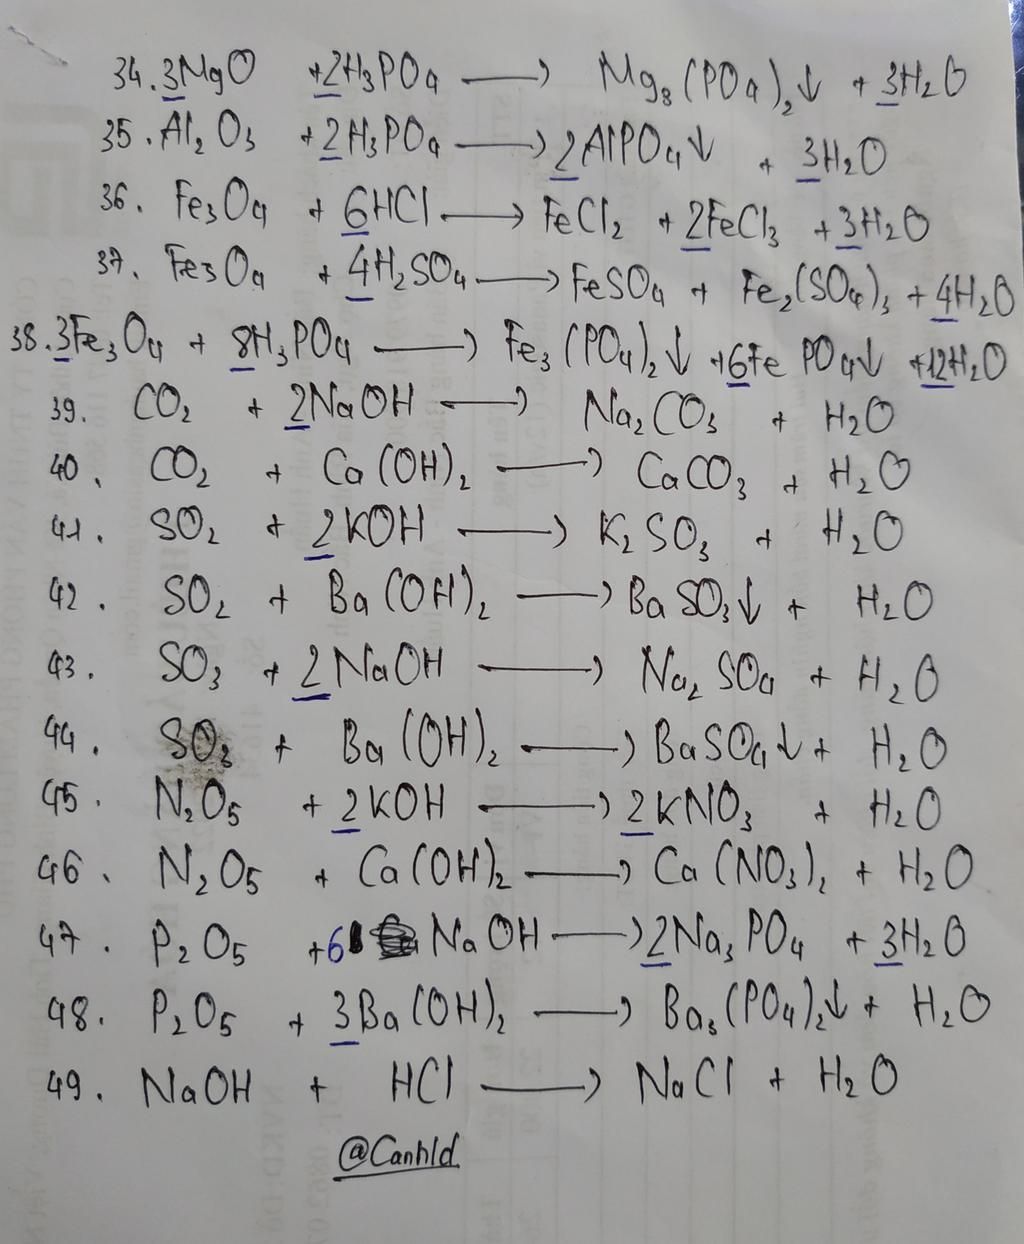 34. 3MgO + 2H₃PO₄ ⟶ Mg₃(PO₄)₂↓ + 3H₂O
35. Al₂O₃ + 2H₃PO₄ ⟶ 2AlPO₄↓ + 3H₂O
36. Fe₃O₄ + 6HCl ⟶ FeCl₂ + 2FeCl₃ + 3H₂O
37. Fe₃O₄ + 4H₂SO₄ ⟶ FeSO₄ + Fe₂(SO₄)₃ + 4H₂O
38. 3Fe₃O₄ + 8H₃PO₄ ⟶ Fe₃(PO₄)₂↓ + 6FePO₄↓ + 12H₂O
39. CO₂ + 2NaOH ⟶ Na₂CO₃ + H₂O
40. CO₂ + Ca(OH)₂ ⟶ CaCO₃ + H₂O
41. SO₂ + 2KOH ⟶ K₂SO₃ + H₂O
42. SO₂ + Ba(OH)₂ ⟶ BaSO₃↓ + H₂O
43. SO₃ + 2NaOH ⟶ Na₂SO₄ + H₂O
44. SO₃ + Ba(OH)₂ ⟶ BaSO₄↓ + H₂O
45. N₂O₅ + 2KOH ⟶ 2KNO₃ + H₂O
46. N₂O₅ + Ca(OH)₂ ⟶ Ca(NO₃)₂ + H₂O
47. P₂O₅ + 6NaOH ⟶ 2Na₃PO₄ + 3H₂O
48. P₂O₅ + 3Ba(OH)₂ ⟶ Ba₃(PO₄)₂↓ + H₂O
49. NaOH + HCl ⟶ NaCl + H₂O
@Canhld